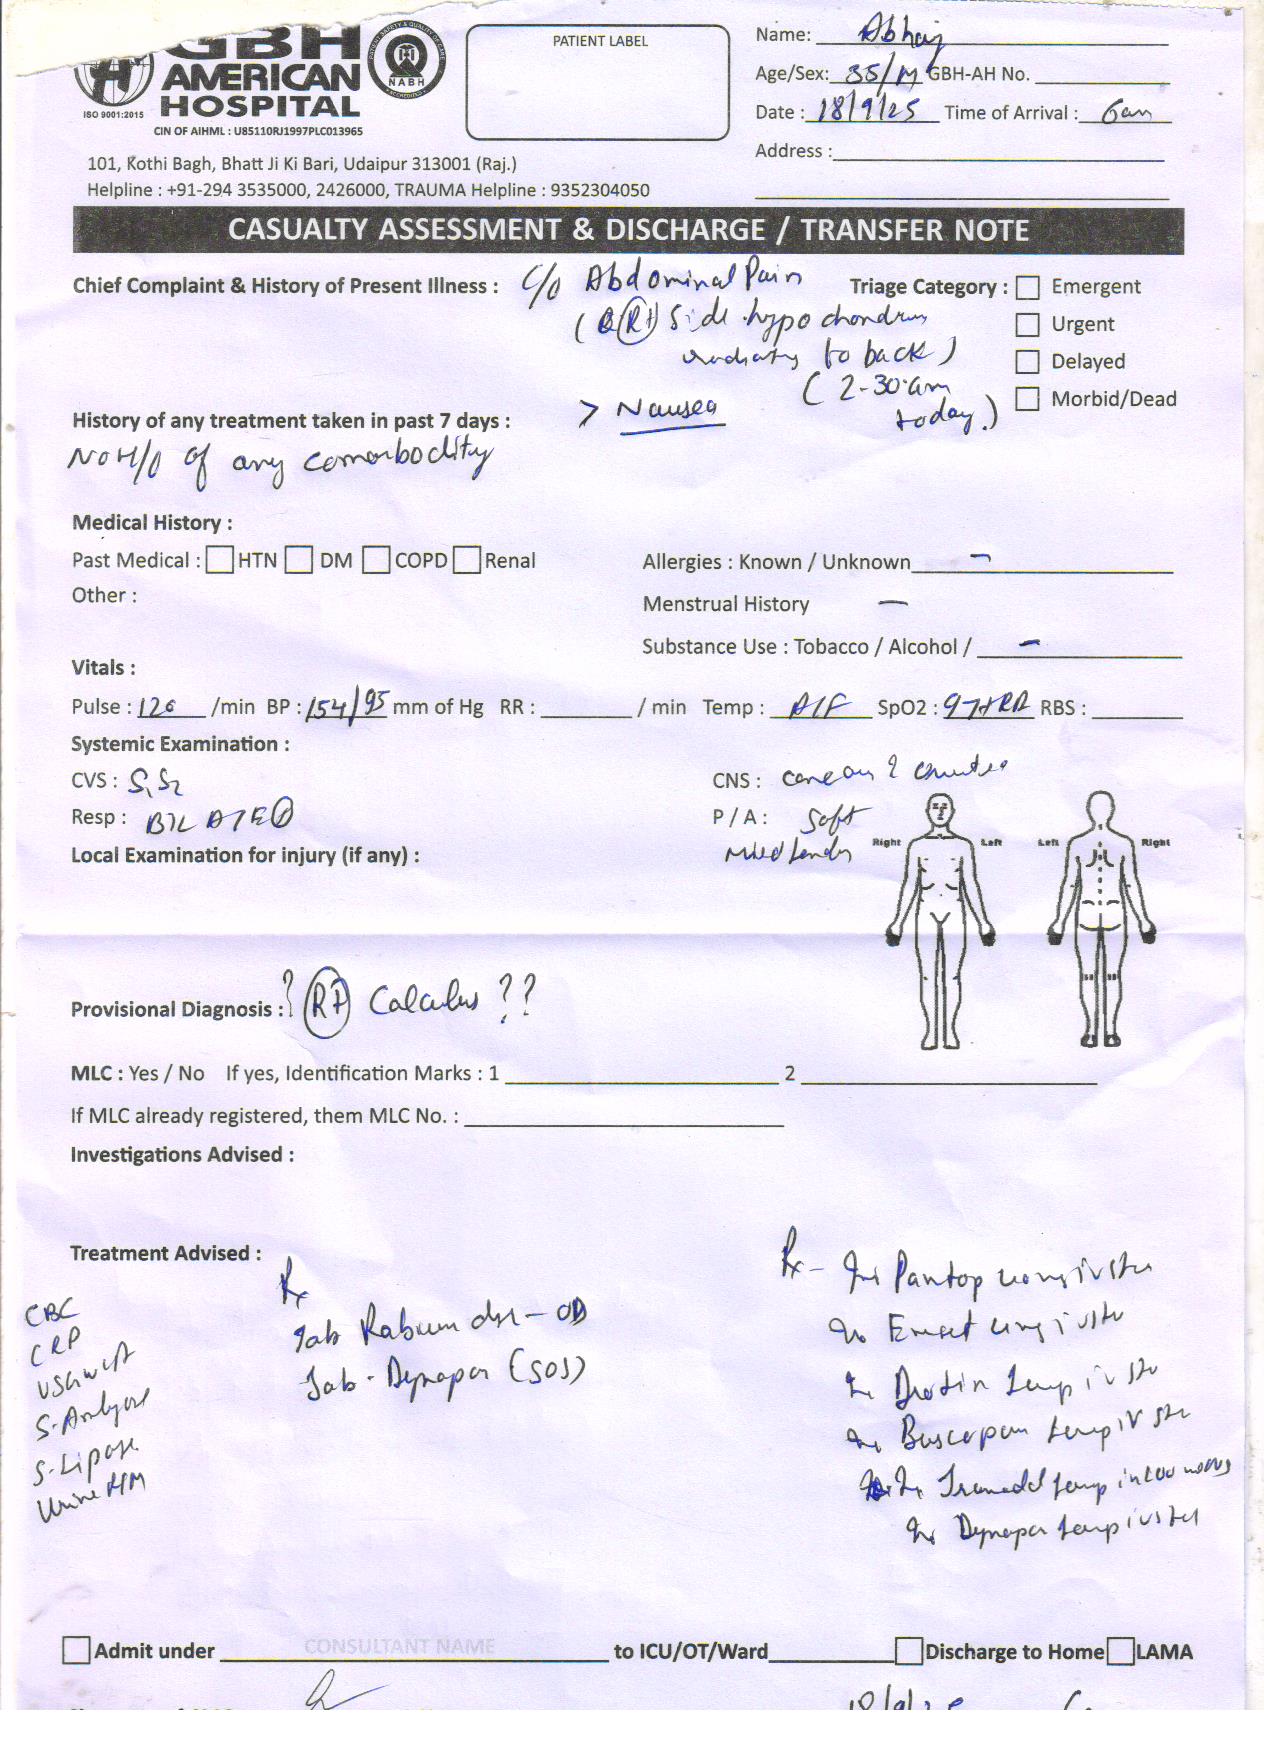 GBH
AMERICAN
HOSPITAL
NABH
ISO 9001:2015
CIN OF AIHML : U85110RJ1997PLC013965
101, Kothi Bagh, Bhatt Ji Ki Bari, Udaipur 313001 (Raj.)
Helpline : +91-294 3535000, 2426000, TRAUMA Helpline : 9352304050
PATIENT LABEL
Name: Abhay
Age/Sex: 35/M GBH-AH No.
Date : 18/9/25 Time of Arrival : 6am
Address :
CASUALTY ASSESSMENT & DISCHARGE / TRANSFER NOTE
Chief Complaint & History of Present Illness : C/O Abdominal Pain
(Rt) Side hypochondrium
radiating to back)
(2-30am
today.)
> Nausea
Triage Category :
Emergent
Urgent
Delayed
Morbid/Dead
History of any treatment taken in past 7 days :
No H/O of any comorbodity
Medical History :
Past Medical : HTN DM COPD Renal
Other :
Allergies : Known / Unknown –
Menstrual History –
Substance Use : Tobacco / Alcohol / –
Vitals :
Pulse : 120 /min BP : 154/95 mm of Hg RR : / min Temp : A/F SpO2 : 97% RA RBS :
Systemic Examination :
CVS : S1S2
CNS :
Resp : B/L AE
P / A : Soft
Mild tender
Local Examination for injury (if any) :
Right Left Left Right
Provisional Diagnosis : ? Rt Calculus ??
MLC : Yes / No If yes, Identification Marks : 1 2
If MLC already registered, them MLC No. :
Investigations Advised :
Treatment Advised :
CBC
CRP
USG
S-Amylase
S-Lipase
Urine RM
Rx
Tab Rabium dsr – OD
Tab - Dynapar (SOS)
Rx – Inj Pantop 40mg iv stat
Inj Emset 4mg iv stat
Inj Drotin 1amp iv stat
Inj Buscopan 1amp IV stat
Inj Tramadol 1amp in 100 ml NS
Inj Dynapar 1amp iv stat
Admit under CONSULTANT NAME to ICU/OT/Ward Discharge to Home LAMA